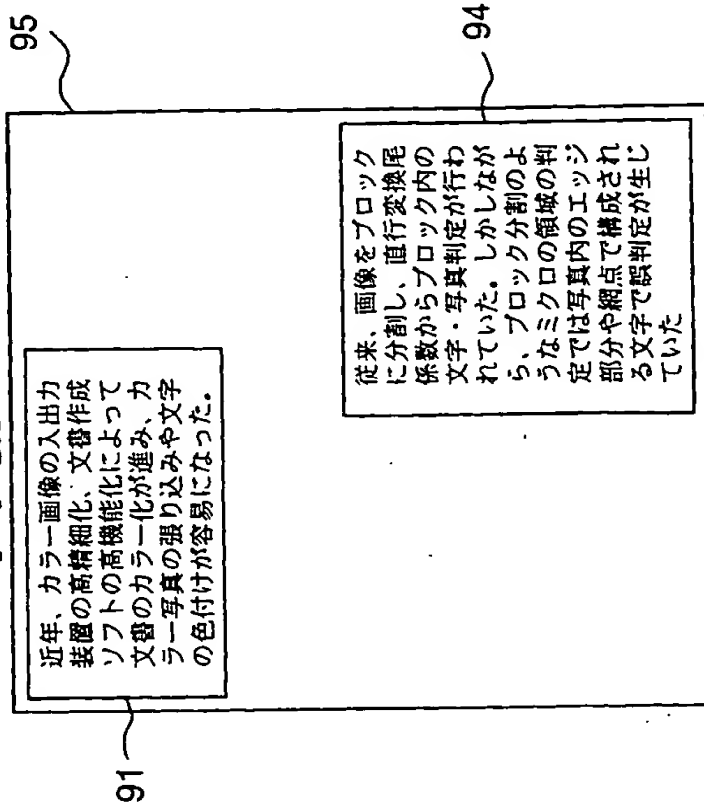 95
近年、カラー画像の入出力
装置の高精細化、文書作成
ソフトの高機能化によって
文書のカラー化が進み、カ
ラー写真の張り込みや文字
の色付けが容易になった。
91
94
従来、画像をブロック
に分割し、直行変換尾
係数からブロック内の
文字・写真判定が行わ
れていた。しかしなが
ら、ブロック分割のよ
うなミクロの領域の判
定では写真内のエッジ
部分や網点で構成され
る文字で誤判定が生じ
ていた